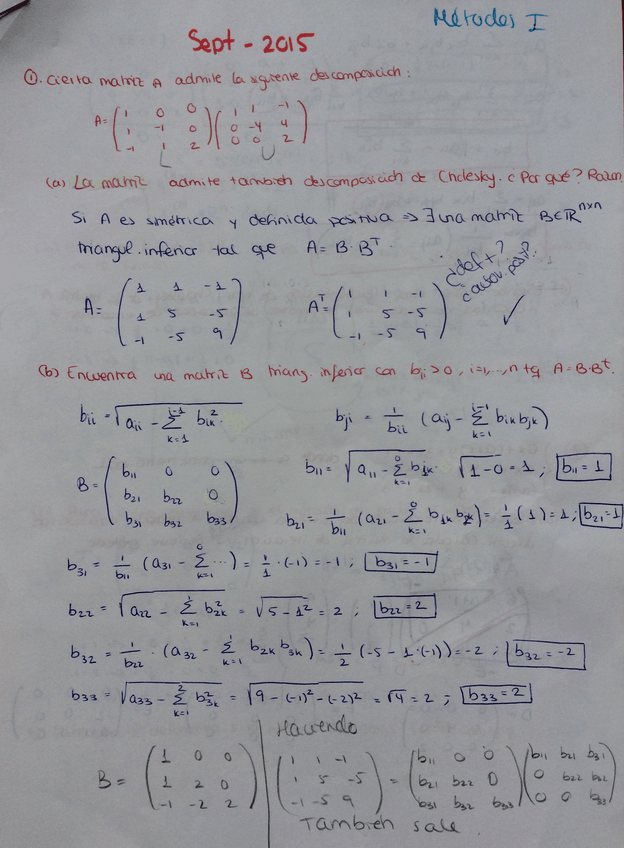 Métodos I
Sept - 2015
①. Cierta matriz A admite la siguiente descomposición:
A= ( 1 0 0 ; 1 -1 0 ; -1 1 2 ) ( 1 1 -1 ; 0 -4 4 ; 0 0 2 )
L U
(a) La matriz admite también descomposición de Cholesky. ¿Por qué? Razon.
Si A es simétrica y definida positiva ⇒ ∃ una matriz B∈ℝⁿˣⁿ
triangul. inferior tal que A= B·Bᵀ.
¿def +?
¿autov. posit?
A= ( 1 1 -1 ; 1 5 -5 ; -1 -5 9 ) Aᵀ= ( 1 1 -1 ; 1 5 -5 ; -1 -5 9 ) ✓
(b) Encuentra una matriz B triang. inferior con bᵢᵢ>0, i=1,...,n tq A=B·Bᵗ.
bᵢᵢ = √(aᵢᵢ - Σ_{k=1}^{i-1} bᵢₖ²) bⱼᵢ = 1/bᵢᵢ (aᵢⱼ - Σ_{k=1}^{i-1} bᵢₖ bⱼₖ)
B= ( b₁₁ 0 0 ; b₂₁ b₂₂ 0 ; b₃₁ b₃₂ b₃₃ ) b₁₁ = √(a₁₁ - Σ_{k=1}^{0} b²₁ₖ) √(1-0) = 1 ; b₁₁ = 1
b₂₁ = 1/b₁₁ (a₂₁ - Σ_{k=1}^{0} b₁ₖ b₂ₖ) = 1/1 (1) = 1 ; b₂₁=1
b₃₁ = 1/b₁₁ (a₃₁ - Σ_{k=1}^{0} ...) = 1/1 · (-1) = -1 ; b₃₁ = -1
b₂₂ = √(a₂₂ - Σ_{k=1}^{1} b²₂ₖ) = √(5 - 1²) = 2 ; b₂₂ = 2
b₃₂ = 1/b₂₂ · (a₃₂ - Σ_{k=1}^{1} b₂ₖ b₃ₖ) = 1/2 (-5 - 1·(-1)) = -2 ; b₃₂ = -2
b₃₃ = √(a₃₃ - Σ_{k=1}^{2} b²₃ₖ) = √(9 - (-1)² - (-2)²) = √4 = 2 ; b₃₃ = 2
Haciendo
B = ( 1 0 0 ; 1 2 0 ; -1 -2 2 ) ( 1 1 -1 ; 1 5 -5 ; -1 -5 9 ) = ( b₁₁ 0 0 ; b₂₁ b₂₂ 0 ; b₃₁ b₃₂ b₃₃ ) ( b₁₁ b₂₁ b₃₁ ; 0 b₂₂ b₃₂ ; 0 0 b₃₃ )
También sale.